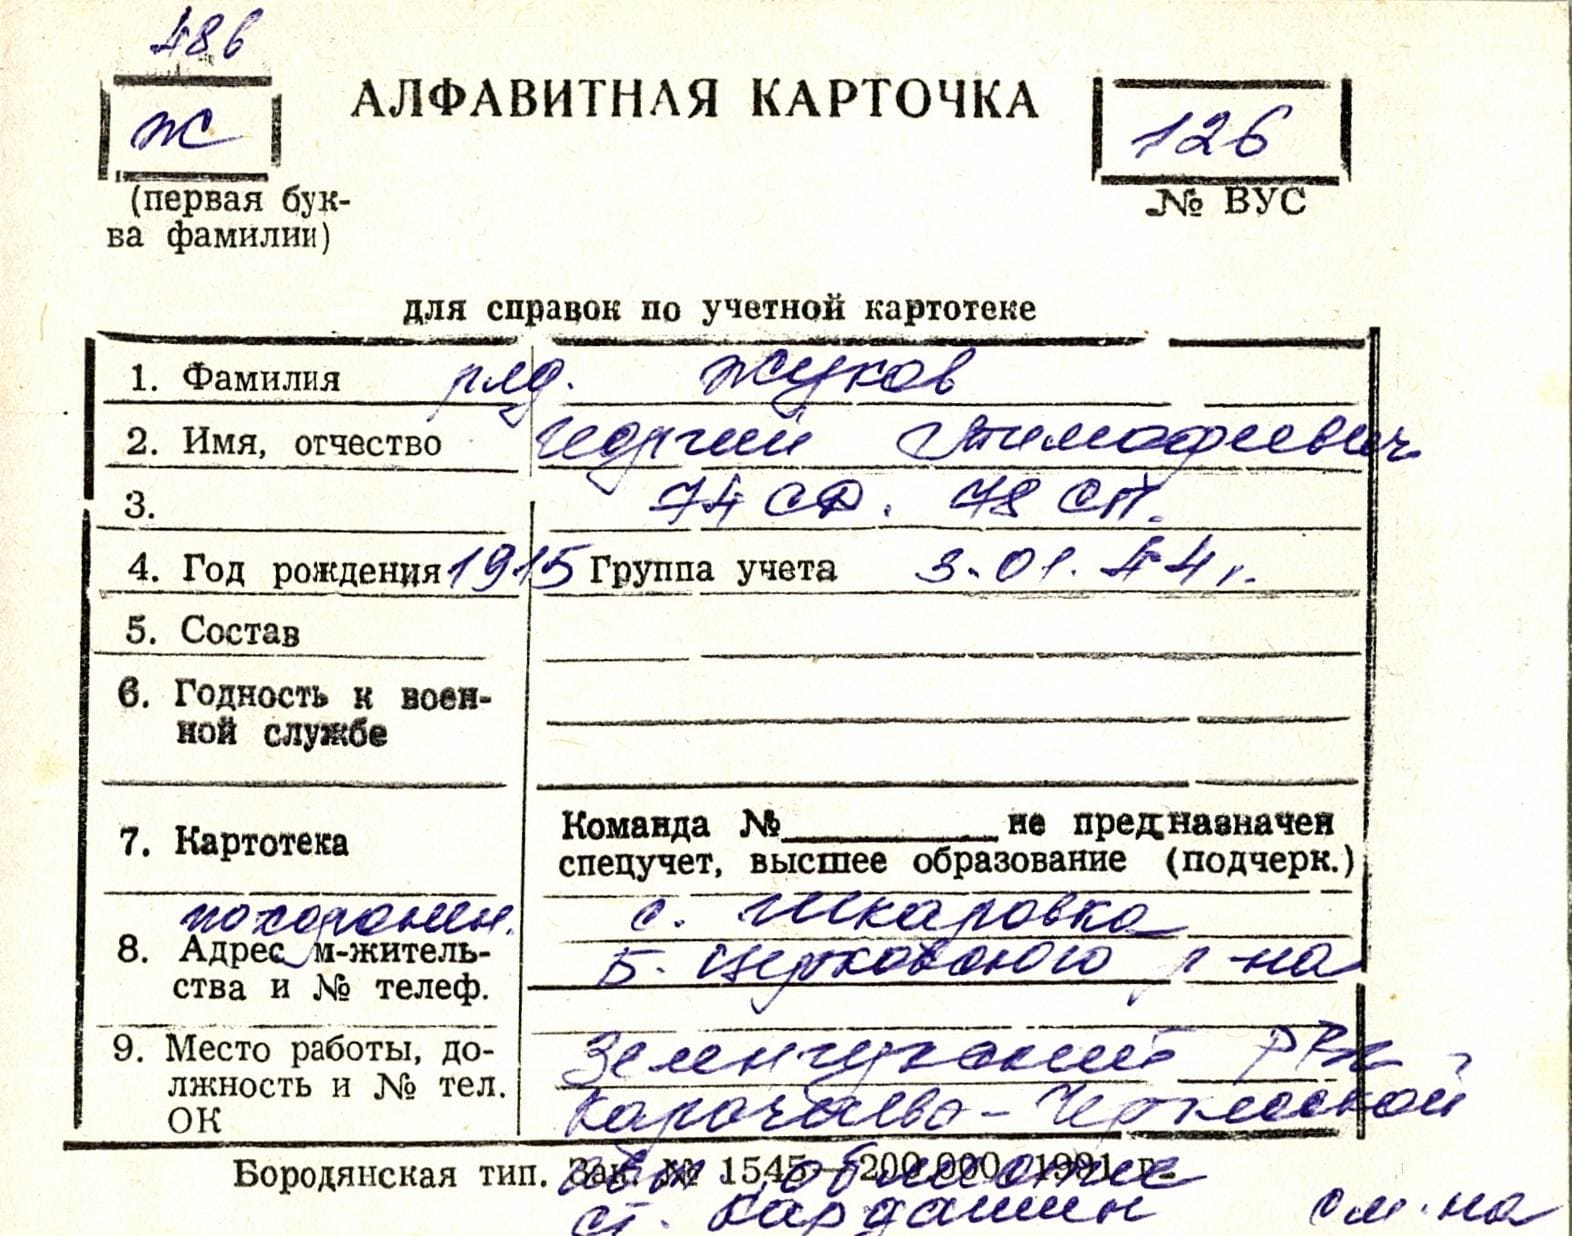 486
Ж
АЛФАВИТНАЯ КАРТОЧКА
126
(первая бук-
ва фамилии)
№ ВУС
для справок по учетной картотеке
1. Фамилия ряд. Жуков
2. Имя, отчество Георгий Тимофеевич
3. 74 СД. 78 СП.
4. Год рождения 1915 Группа учета 3.01.44 г.
5. Состав
6. Годность к воен-
ной службе
7. Картотека
Команда № не предназначен
спецучет, высшее образование (подчерк.)
похоронен. с. Шкаровка
8. Адрес м-житель-
ства и № телеф.
Б. Церковского р-на
9. Место работы, до-
лжность и № тел.
ОК
Зеленчукский РВК
Карачаево-Черкесской
Бородянская тип. Зак. № 1545—200.000. 1991 г.
ст. см. на